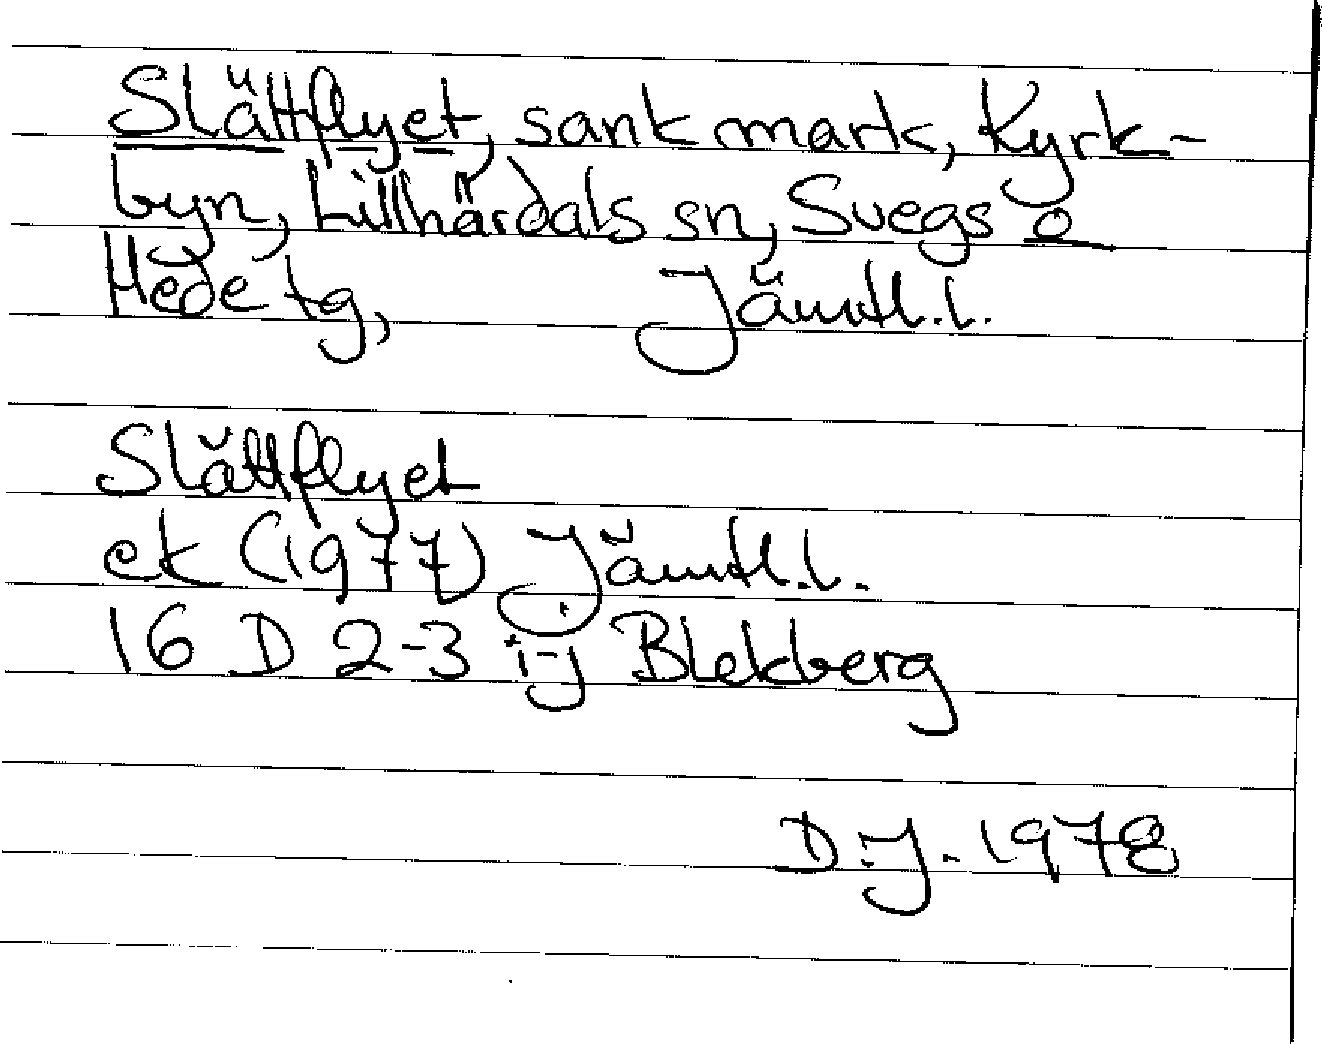 Slättflyet, sank mark, Kyrk-
byn, Lillhärdals sn, Svegs o
Hede tg, Jämtl.l.
Slättflyet
ek (1977) Jämtl.l.
16 D 2-3 i-j Blekberg
D.J. 1978